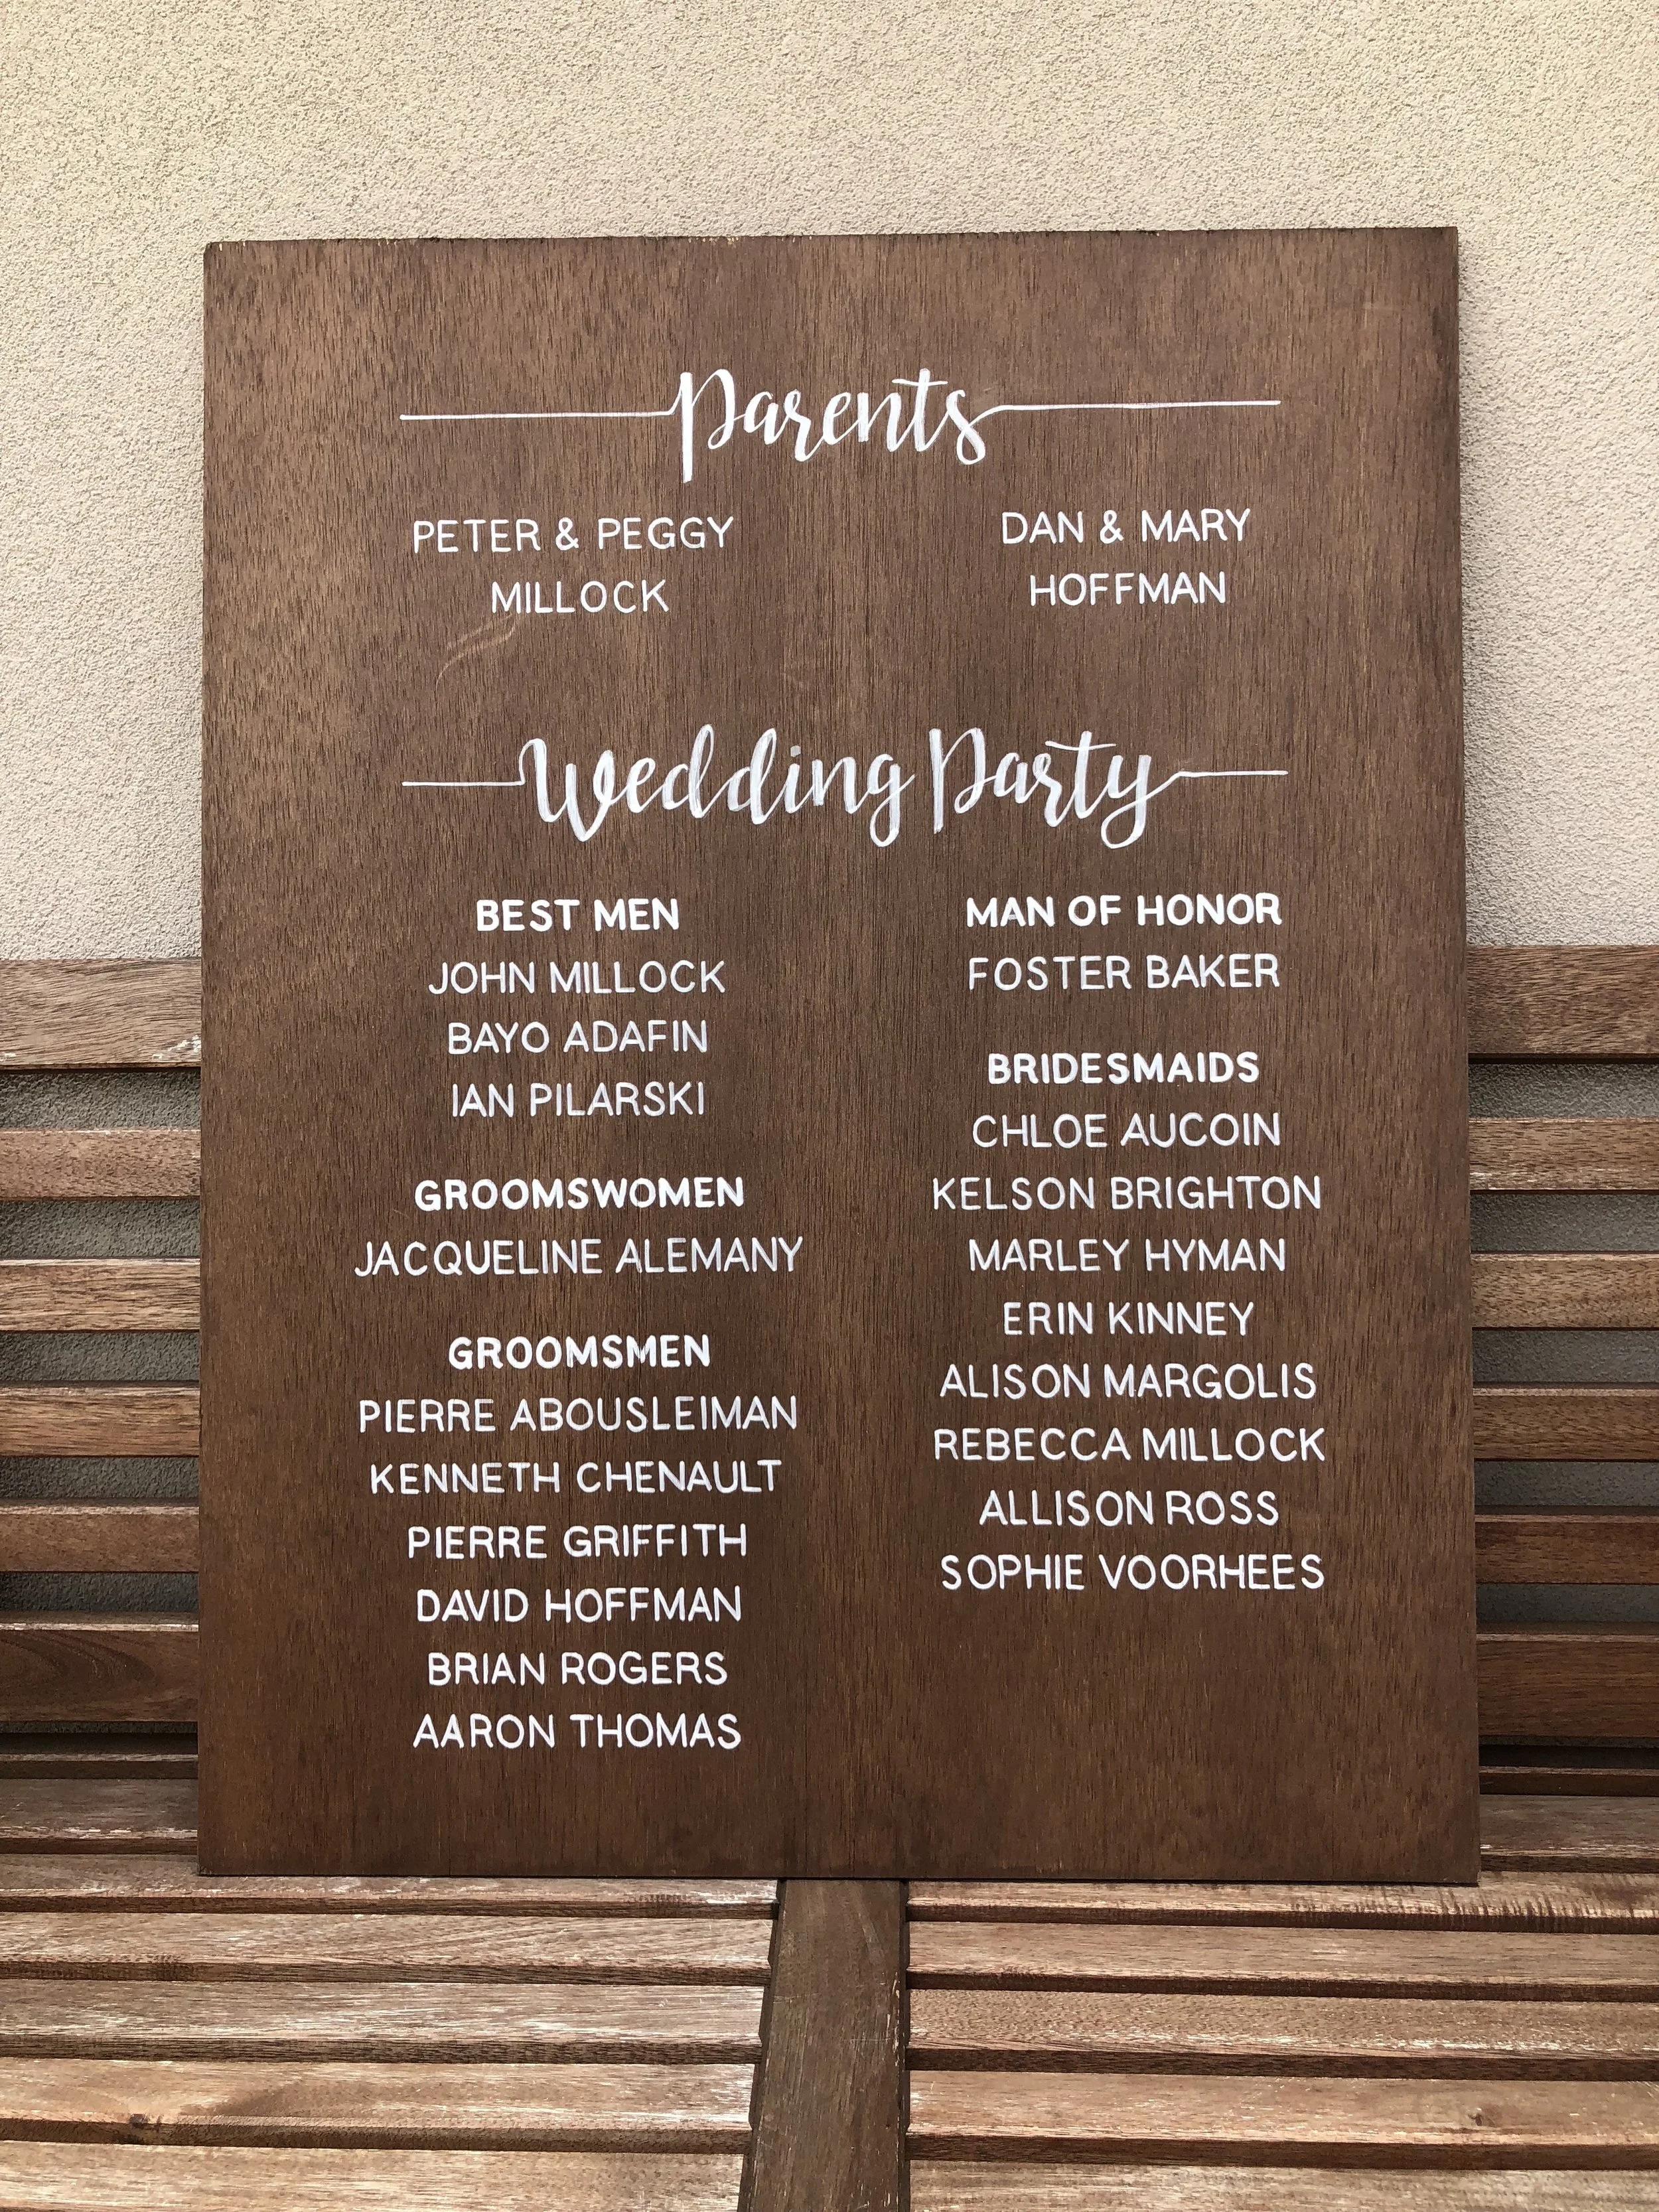 Parents
PETER & PEGGY
MILLOCK
DAN & MARY
HOFFMAN
Wedding Party
BEST MEN
JOHN MILLOCK
BAYO ADAFIN
IAN PILARSKI
GROOMSWOMEN
JACQUELINE ALEMANY
GROOMSMEN
PIERRE ABOUSLEIMAN
KENNETH CHENAULT
PIERRE GRIFFITH
DAVID HOFFMAN
BRIAN ROGERS
AARON THOMAS
MAN OF HONOR
FOSTER BAKER
BRIDESMAIDS
CHLOE AUCOIN
KELSON BRIGHTON
MARLEY HYMAN
ERIN KINNEY
ALISON MARGOLIS
REBECCA MILLOCK
ALLISON ROSS
SOPHIE VOORHEES